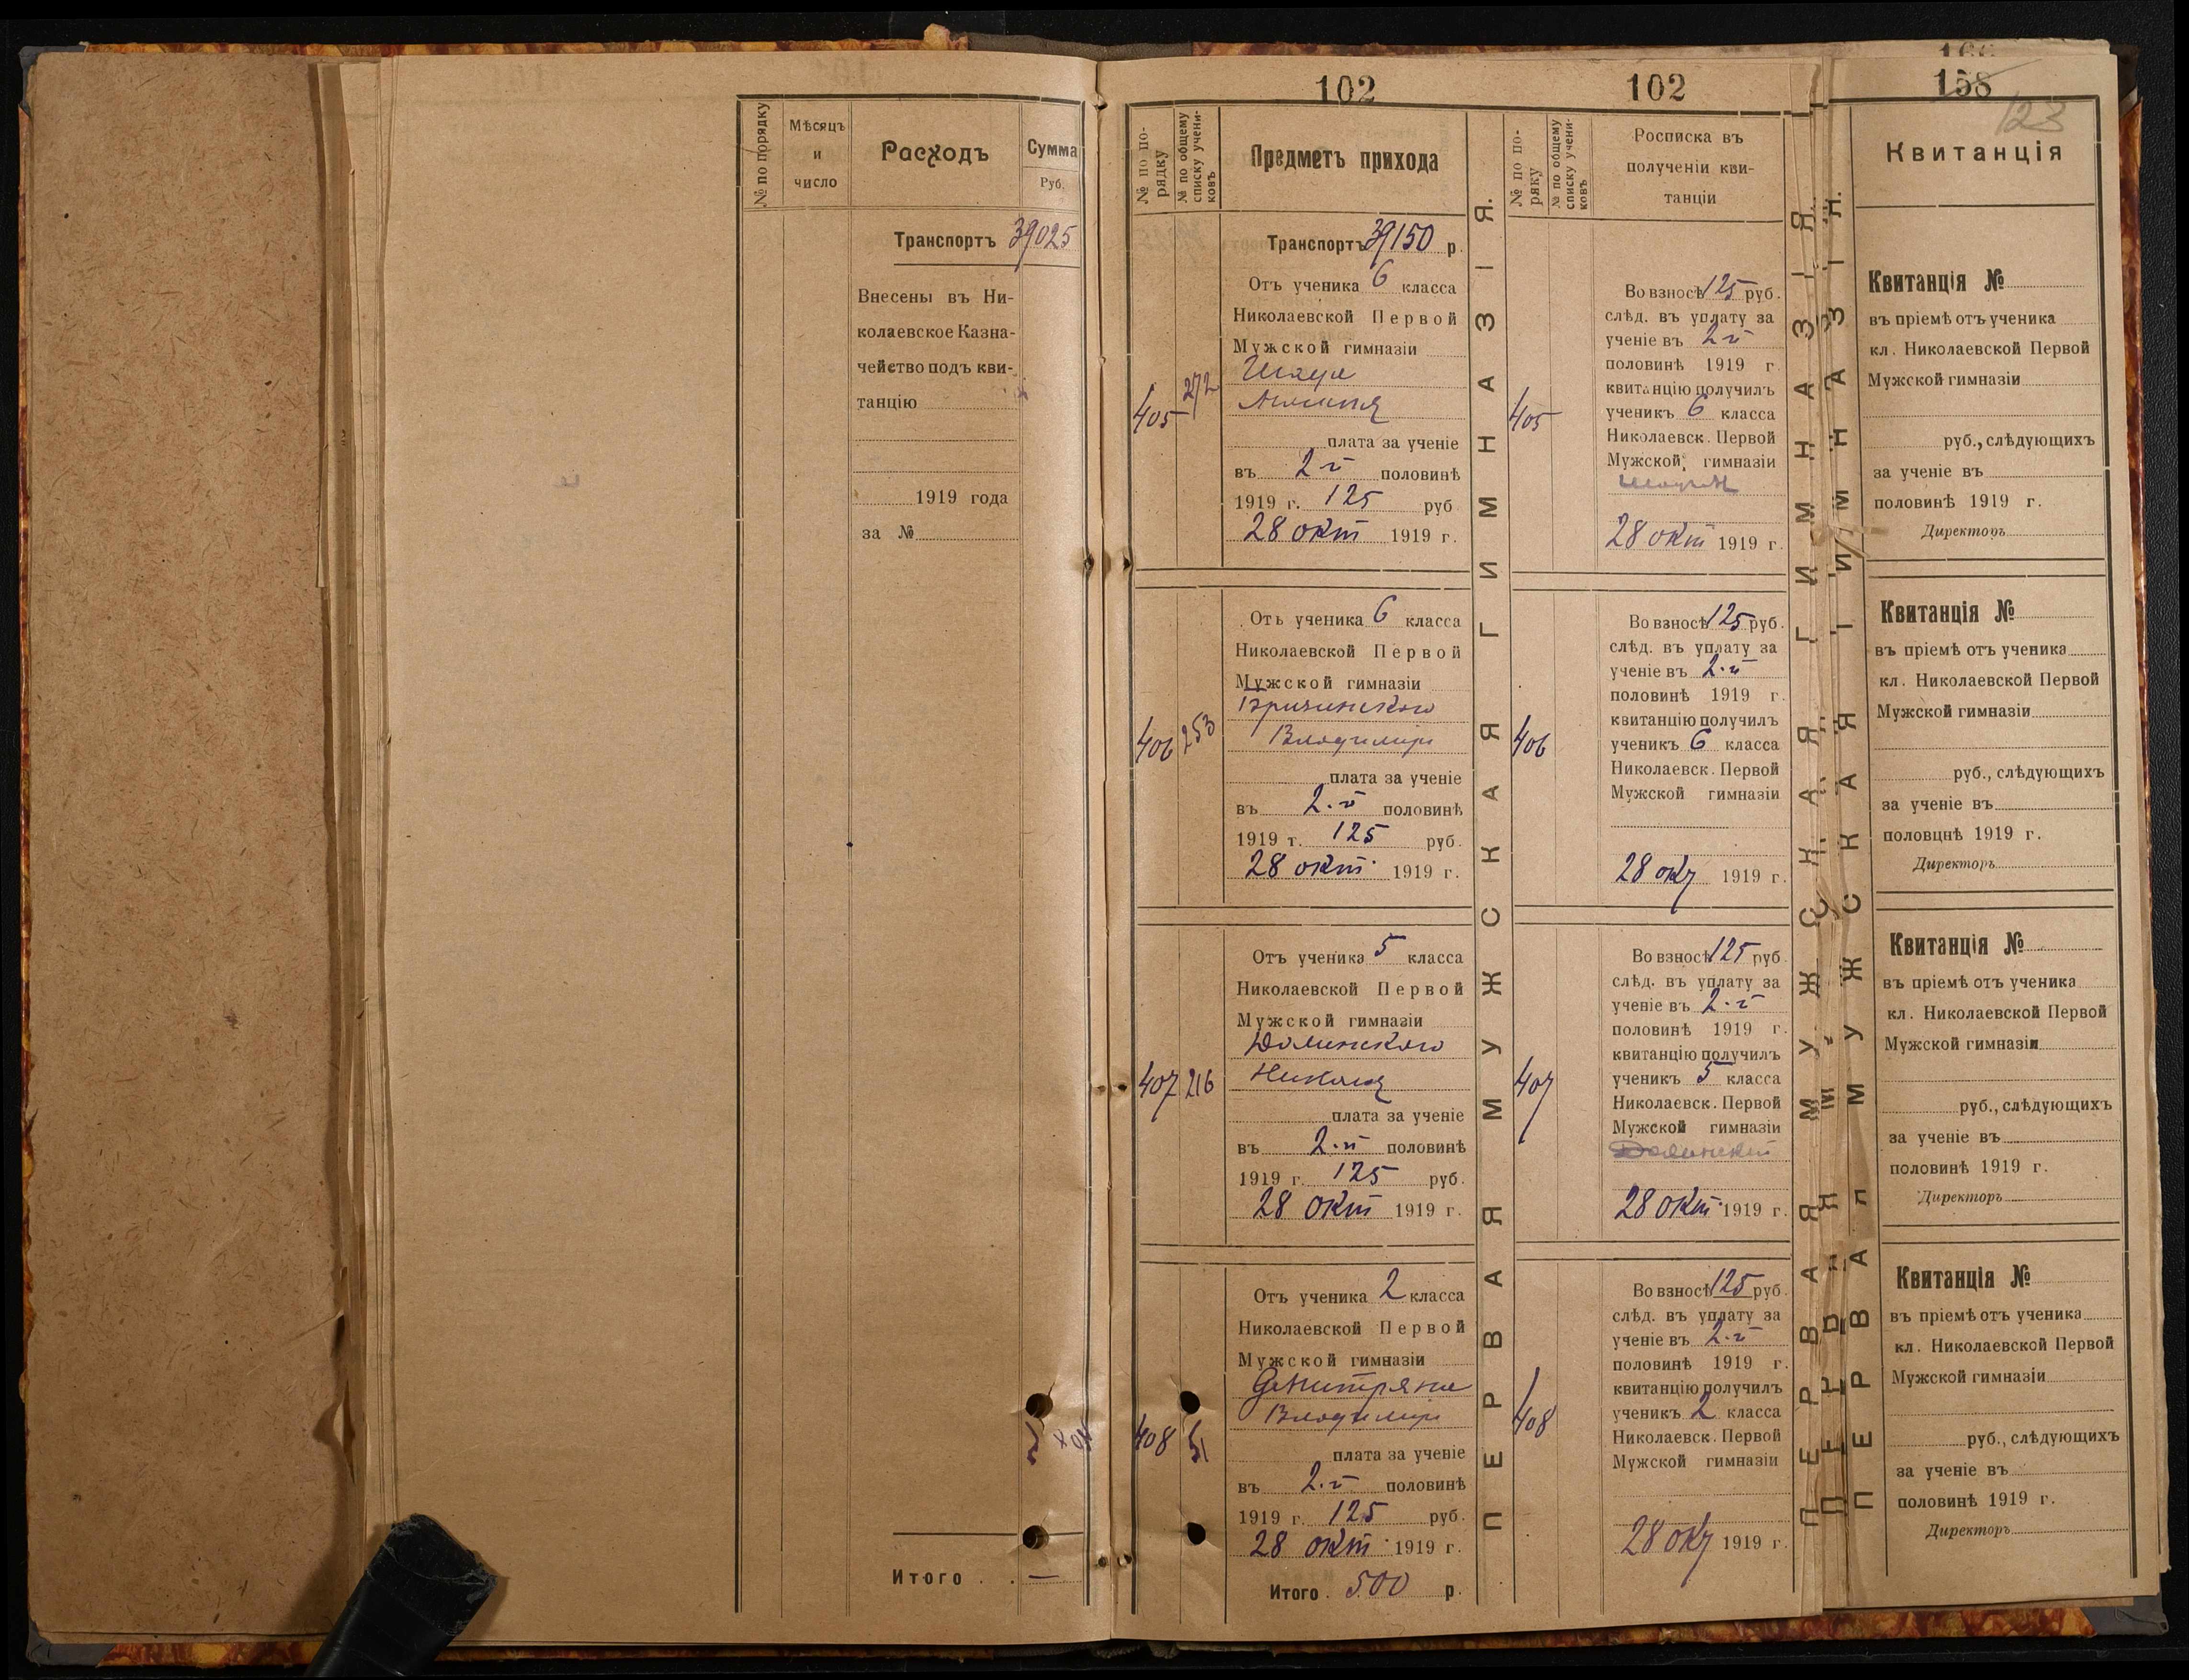 № по порядку
Мѣсяцъ
и
число
Расходъ
Сумма
Руб.
Транспортъ 39025
Внесены въ Ни-
колаевское Казна-
чейство подъ кви-
танцію
1919 года
за №
Итого . . —
102
№ по по-
рядку
№ по общему
списку учени-
ковъ
Предметъ прихода
Транспортъ 39150 р
405
272
Отъ ученика 6 класса
Николаевской Первой
Мужской гимназіи
плата за ученіе
въ 2-й половинѣ
1919 г. 125 руб
28 окт 1919 г.
406
253
Отъ ученика 6 класса
Николаевской Первой
Мужской гимназіи
Владимир
плата за ученіе
въ 2-й половинѣ
1919 г. 125 руб.
28 окт. 1919 г.
407
216
Отъ ученика 5 класса
Николаевской Первой
Мужской гимназіи
Долинского
Николая
плата за ученіе
въ 2-й половинѣ
1919 г. 125 руб.
28 окт 1919 г.
408
51
Отъ ученика 2 класса
Николаевской Первой
Мужской гимназіи
Владимир
плата за ученіе
въ 2-й половинѣ
1919 г. 125 руб.
28 окт. 1919 г.
Итого . 500 р.
ПЕРВАЯ МУЖСКАЯ ГИМНАЗІЯ.
102
№ по по-
ряку
№ по общему
списку учени-
ковъ
Росписка въ
полученіи кви-
танціи
405
Во взносѣ 125 руб.
слѣд. въ уплату за
ученіе въ 2-й
половинѣ 1919 г
квитанцію получилъ
ученикъ 6 класса
Николаевск. Первой
Мужской гимназіи
28 окт 1919 г.
406
Во взносѣ 125 руб.
слѣд. въ уплату за
ученіе въ 2-й
половинѣ 1919 г.
квитанцію получилъ
ученикъ 6 класса
Николаевск. Первой
Мужской гимназіи
28 окт 1919 г.
407
Во взносѣ 125 руб
слѣд. въ уплату за
ученіе въ 2-й
половинѣ 1919 г.
квитанцію получилъ
ученикъ 5 класса
Николаевск. Первой
Мужской гимназіи
Долинский
28 окт. 1919 г.
408
Во взносѣ 125 руб
слѣд. въ уплату за
ученіе въ 2-й
половинѣ 1919 г.
квитанцію получилъ
ученикъ 2 класса
Николаевск. Первой
Мужской гимназіи
28 окт 1919 г.
ПЕРВАЯ МУЖСКАЯ ГИМНАЗІЯ.
158
123
Квитанція
Квитанція №
въ пріемѣ отъ ученика
кл. Николаевской Первой
Мужской гимназіи
руб., слѣдующихъ
за ученіе въ
половинѣ 1919 г.
Директоръ
Квитанція №
въ пріемѣ отъ ученика
кл. Николаевской Первой
Мужской гимназіи
руб., слѣдующихъ
за ученіе въ
половцнѣ 1919 г.
Директоръ
Квитанція №
въ пріемѣ отъ ученика
кл. Николаевской Первой
Мужской гимназіи
руб., слѣдующихъ
за ученіе въ
половинѣ 1919 г.
Директоръ
Квитанція №
въ пріемѣ отъ ученика
кл. Николаевской Первой
Мужской гимназіи
руб., слѣдующихъ
за ученіе въ
половинѣ 1919 г.
Директоръ